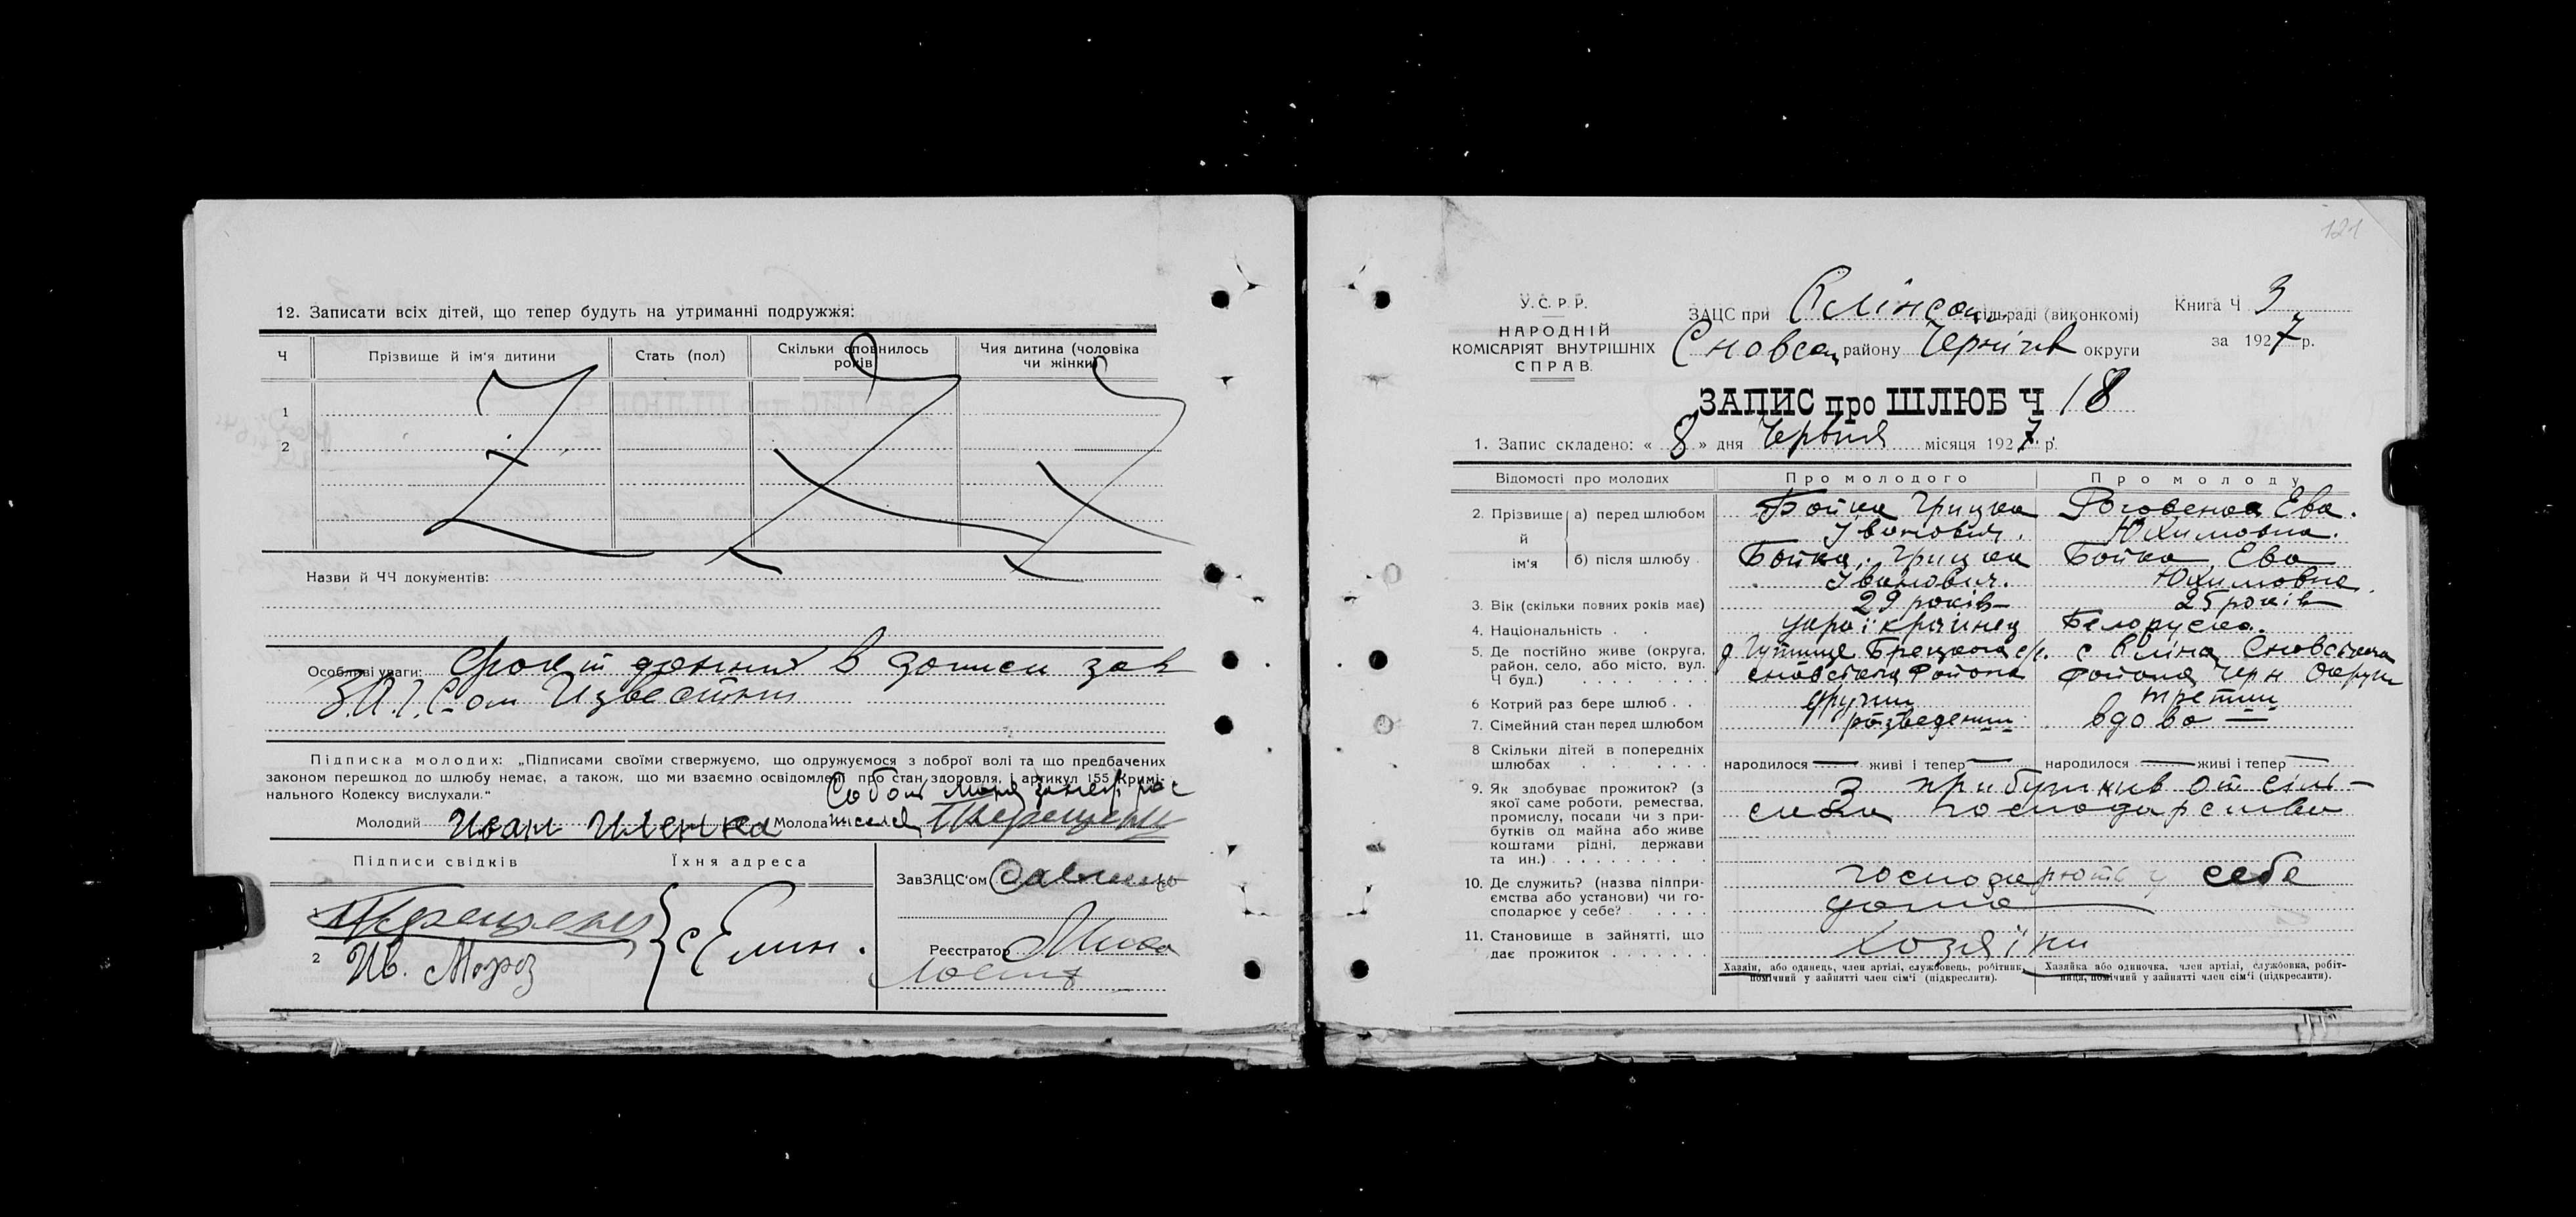 12. Записати всіх дітей, що тепер будуть на утриманні подружжя:
Ч Прізвище й ім'я дитини Стать (пол) Скільки сповнилось років Чия дитина (чоловіка чи жінки)
1
2
Назви й ЧЧ документів:
Особливі уваги: в записи зав
З.А.Г.С-ом Известни
Підписка молодих: „Підписами своїми стверджуємо, що одружуємося з доброї волі та що предбачених
законом перешкод до шлюбу немає, а також, що ми взаємно освідомлені про стан здоровля, і артикул 155 Кримі-
нального Кодексу вислухали."
Молодий Иван Молода
Підписи свідків Їхня адреса
ЗавЗАЦС'ом
Терещенко
2 Ив. Мороз
с Елин.
Реєстратор
121
У.С.Р.Р.
НАРОДНІЙ
КОМІСАРІЯТ ВНУТРІШНІХ
СПРАВ.
ЗАЦС при сільраді (виконкомі)
Сновск району Чернігів округи
Книга Ч 3
за 1927 р.
ЗАПИС про ШЛЮБ Ч 18
1. Запис складено: « 8 » дня Червня місяця 1927 р.
Відомості про молодих Про молодого Про молоду
2. Прізвище й ім'я а) перед шлюбом Бойка Грицка Іванович. Ева Юхимовна.
б) після шлюбу Бойка Грицка Іванович. Бойка Ева Юхимовна
3. Вік (скільки повних років має) 29 років 25 років
4. Національність Белоруска.
5. Де постійно живе (округа, район, село, або місто, вул. Ч буд.) Сновского Района с Єліна Сновского Района Черн Округи
6 Котрий раз бере шлюб другий третий
7. Сімейний стан перед шлюбом розведений вдова
8 Скільки дітей в попередніх шлюбах народилося — живі і тепер — народилося — живі і тепер —
9. Як здобуває прожиток? (з якої саме роботи, ремества, промислу, посади чи з прибутків од майна або живе коштами рідні, держави та ин.) З прибутків от сільского господарства
10. Де служить? (назва підприємства або установи) чи господарює у себе? господарюють у себе дома
11. Становище в зайнятті, що дає прожиток Хозяїни
Хазяїн, або одинець, член артілі, службовець, робітник, помічний у зайнятті член сім'ї (підкреслити).
Хазяйка або одиночка, член артілі, службовка, робітниця, помічний у зайнятті член сім'ї (підкреслити).